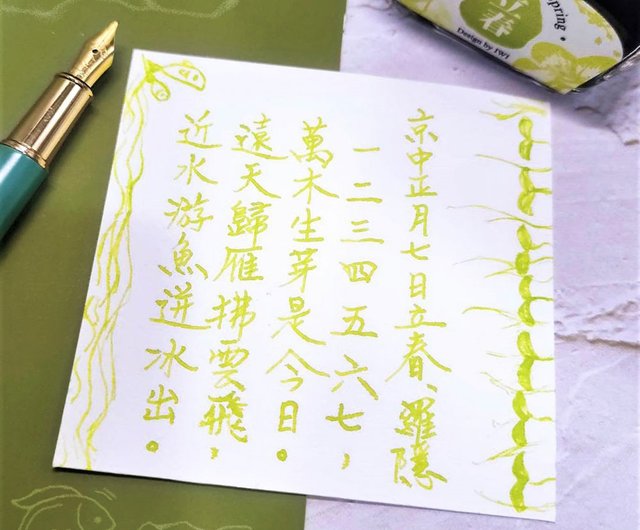 京中正月七日立春、羅隱
一二三四五六七,
萬木生芽是今日。
遠天歸雁拂雲飛,
近水游魚迸冰出。
立春
Spring
Design by JWJ